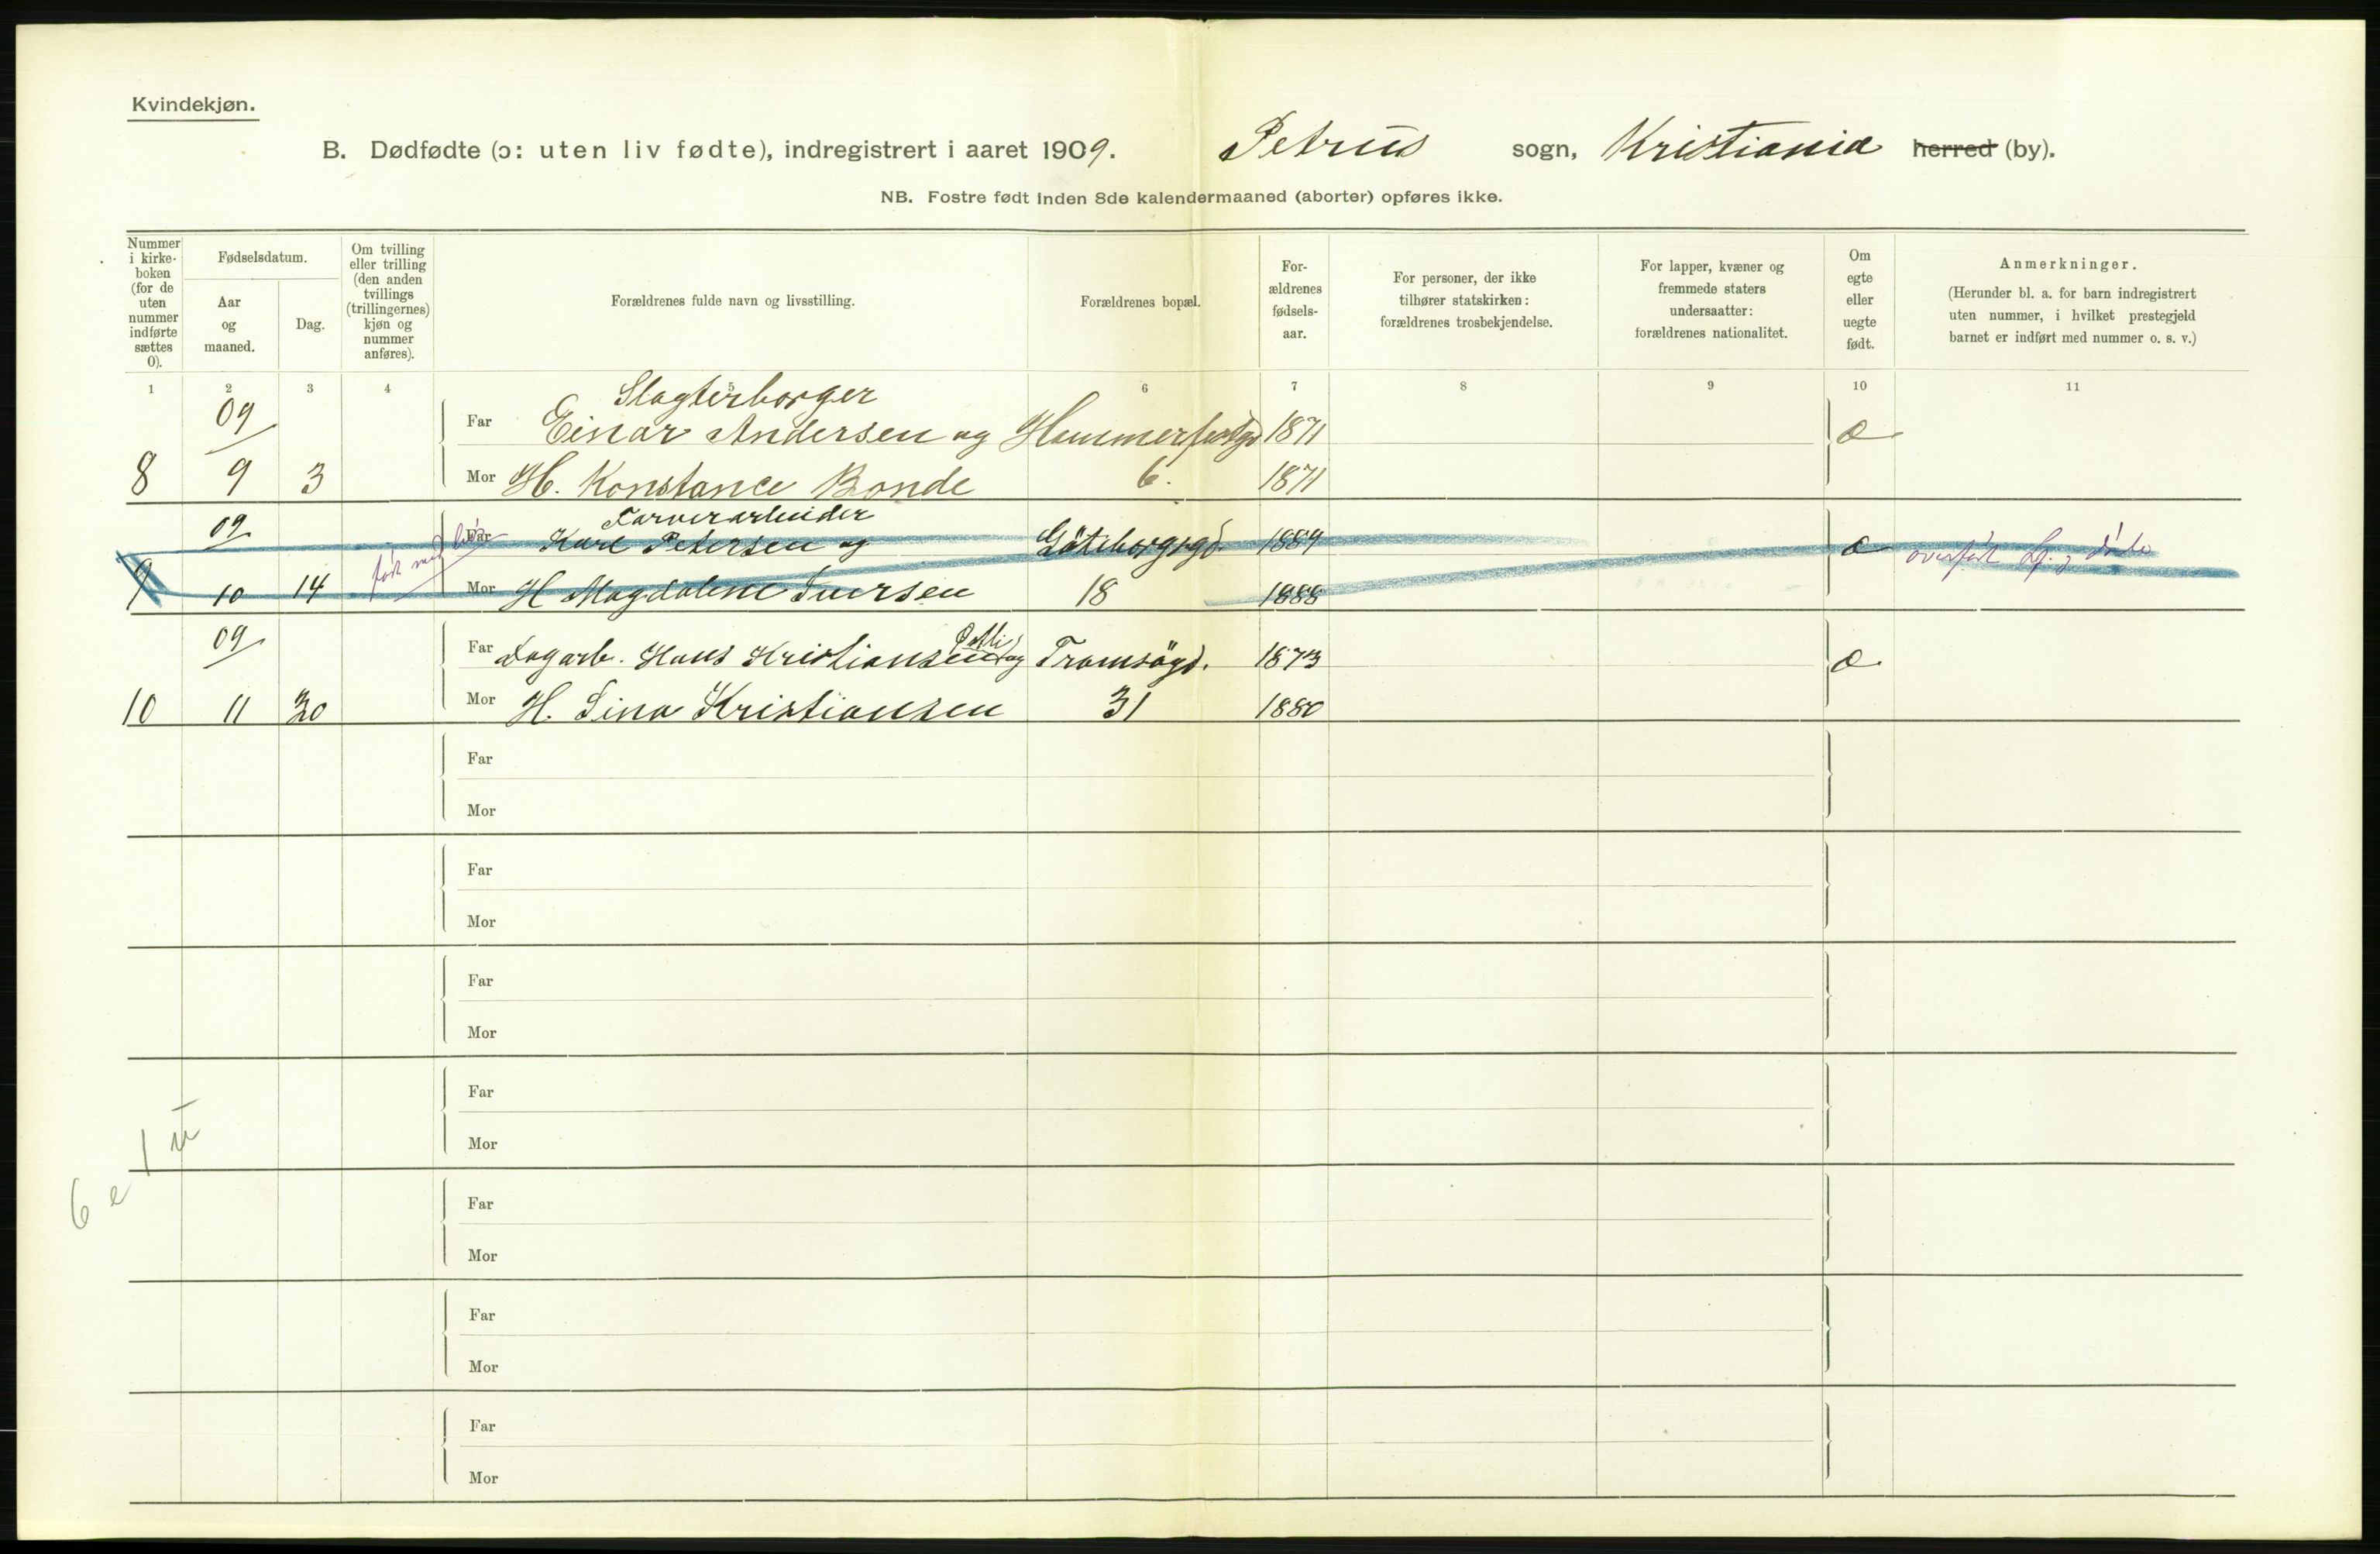 Kvindekjøn.
B. Dødfødte (ɔ: uten liv fødte), indregistrert i aaret 1909. Petrus sogn, Kristiania herred (by).
NB. Fostre født inden 8de kalendermaaned (aborter) opføres ikke.
Nummer
i kirke-
boken
(for de
uten
nummer
indførte
sættes
0).
Fødselsdatum.
Aar
og
maaned.
Dag.
Om tvilling
eller trilling
(den anden
tvillings
(trillingernes)
kjøn og
nummer
anføres).
Forældrenes fulde navn og livsstilling.
Forældrenes bopæl.
For-
ældrenes
fødsels-
aar.
For personer, der ikke
tilhører statskirken:
forældrenes trosbekjendelse.
For lapper, kvæner og
fremmede staters
undersaatter:
forældrenes nationalitet.
Om
egte
eller
uegte
født.
Anmerkninger.
(Herunder bl. a. for barn indregistrert
uten nummer, i hvilket prestegjeld
barnet er indført med nummer o. s. v.)
1 2 3 4 5 6 7 8 9 10 11
09 Slagterborger
Far Einar Andersen og Hammerfestgd 1871 æ
8 9 3 Mor H. Konstance Bonde 6. 1871
09 Farverarbeider
Far Karl Petersen og Göteborgsgd. 1889 æ
født med liv
9 10 14 Mor H Magdalene Iversen 18 1888
09 Far Dagarb. Hans Kristiansen og Tromsögd. 1873 æ
10 11 30 Mor H. Lina Kristiansen 31 1880
Far
Mor
Far
Mor
Far
Mor
Far
Mor
Far
Mor
Far
Mor
Far
Mor
6 e 1 u